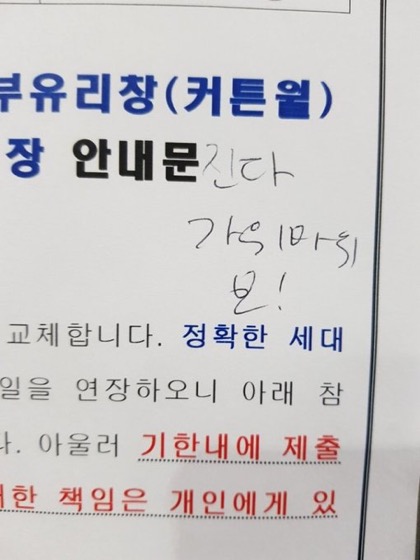 부유리창(커튼월)
장 안내문진다
가위바위
보!
교체합니다. 정확한 세대
일을 연장하오니 아래 참
다. 아울러 기한내에 제출
책임은 개인에게 있